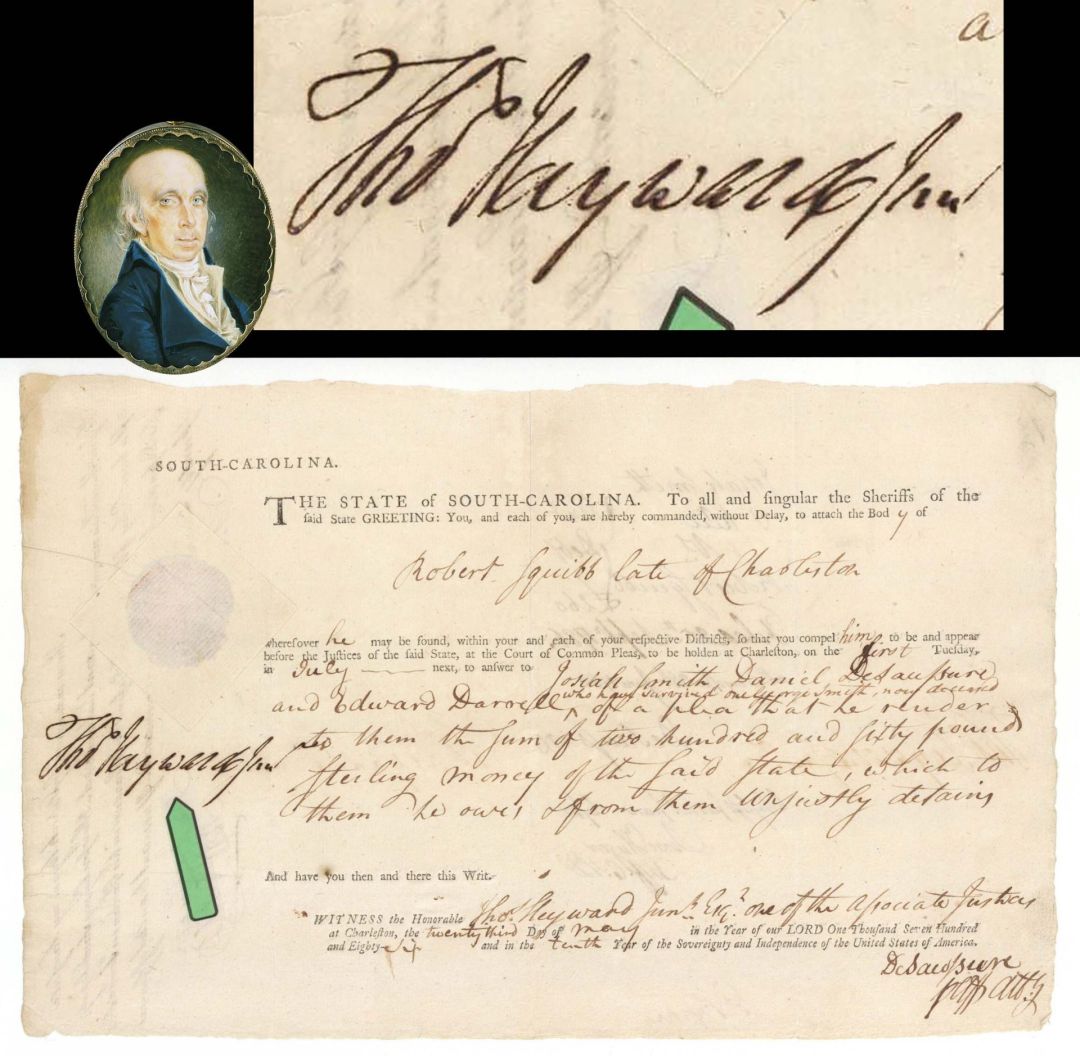 a
Tho Hayward Jun
SOUTH-CAROLINA.
THE STATE of SOUTH-CAROLINA. To all and singular the Sheriffs of the
said State GREETING: You, and each of you, are hereby commanded, without Delay, to attach the Bod y of
Robert Squibb late of Charleston
wheresoever he may be found, within your and each of your respective Districts, so that you compel him to be and appear
before the Justices of the said State, at the Court of Common Pleas, to be holden at Charleston, on the first Tuesday,
in July next, to answer to Josiah Smith, Daniel DeSaussure
who have survived one George Smith, now deceased
and Edward Darrell of a plea that he render
to them the sum of two hundred and sixty pounds
Sterling money of the said State, which to
them he owes & from them unjustly detains
Tho Hayward Jun
And have you then and there this Writ.
WITNESS the Honorable Thos. Heyward Junr. Esqr. one of the Associate Justices
at Charleston, the twenty third Day of may in the Year of our LORD One Thousand Seven Hundred
and Eighty-Six and in the tenth Year of the Sovereignty and Independence of the United States of America.
DeSaussure
Atty